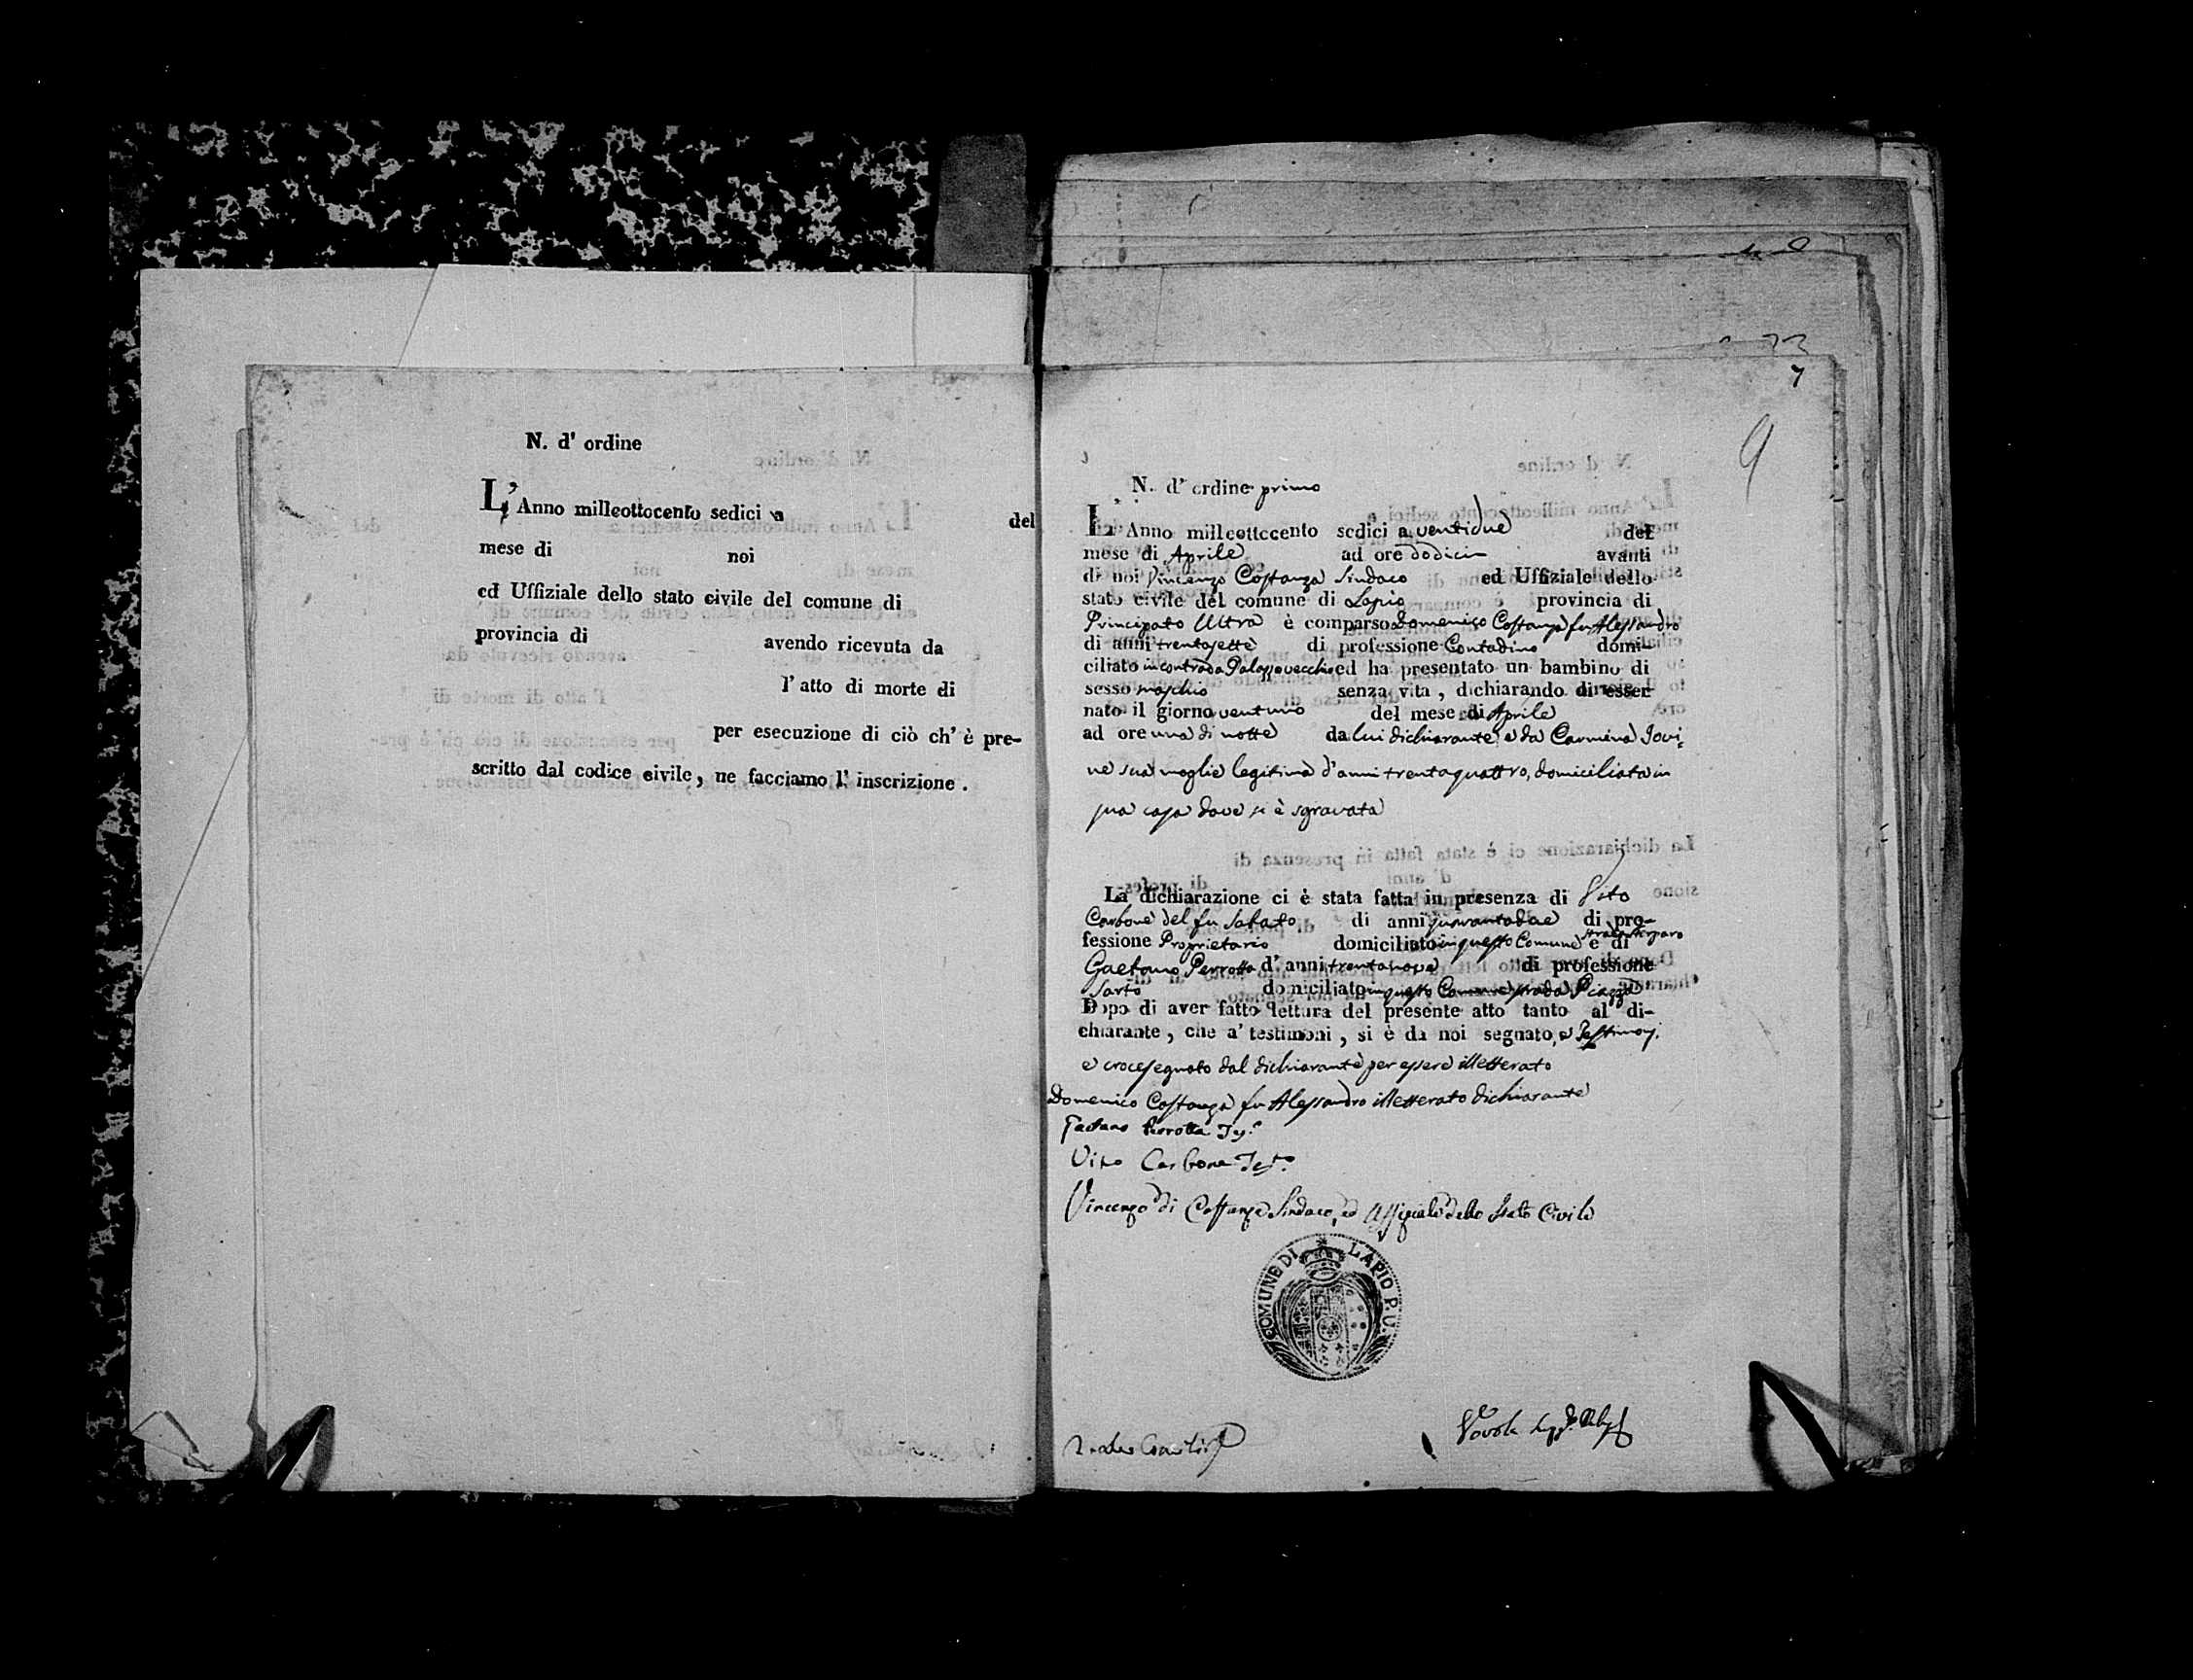 N. d' ordine
L' Anno milleottocento sedici a del
mese di noi
ed Uffiziale dello stato civile del comune di
provincia di avendo ricevuta da
l' atto di morte di
per esecuzione di ciò ch' è pre-
scritto dal codice civile, ne facciamo l' inscrizione.
7
9
N. d' ordine primo
L' Anno milleottocento sedici a ventidue del
mese di Aprile ad ore dodici avanti
di noi Vincenzo Costanza Sindaco ed Uffiziale dello
stato civile del comune di Lapio provincia di
Principato Ultra è comparso Domenico Costanza fu Alessandro
di anni trentasette di professione Contadino domi-
ciliato in contrada Palazzovecchio ed ha presentato un bambino di
sesso maschio senza vita, dichiarando di esser
nato il giorno ventuno del mese di Aprile
ad ore una di notte da lui dichiarante, e da Carmina Jovi
ne sua moglie legitima d'anni trentaquattro, domiciliata in
sua casa dove si è sgravata
La dichiarazione ci è stata fatta in presenza di Vito
Carbone del fu Sabato di anni quarantadue di pro-
fessione Proprietario domiciliato in questo Comune strada e di
Gaetano Perrotta d' anni trentanove di professione
Sarto domiciliato in questo Comune strada Piazza
Dopo di aver fatto lettura del presente atto tanto al di-
chiarante, che a' testimoni, si è da noi segnato, e Testimonj
e crocesegnato dal dichiarante per essere illetterato
Domenico Costanza fu Alessandro illetterato dichiarante
Gaetano Perrotta Tes.
Vito Carbone Test.
Vincenzo di Costanza Sindaco, ed Uffiziale dello Stato Civile
COMUNE DI LAPIO P. U.